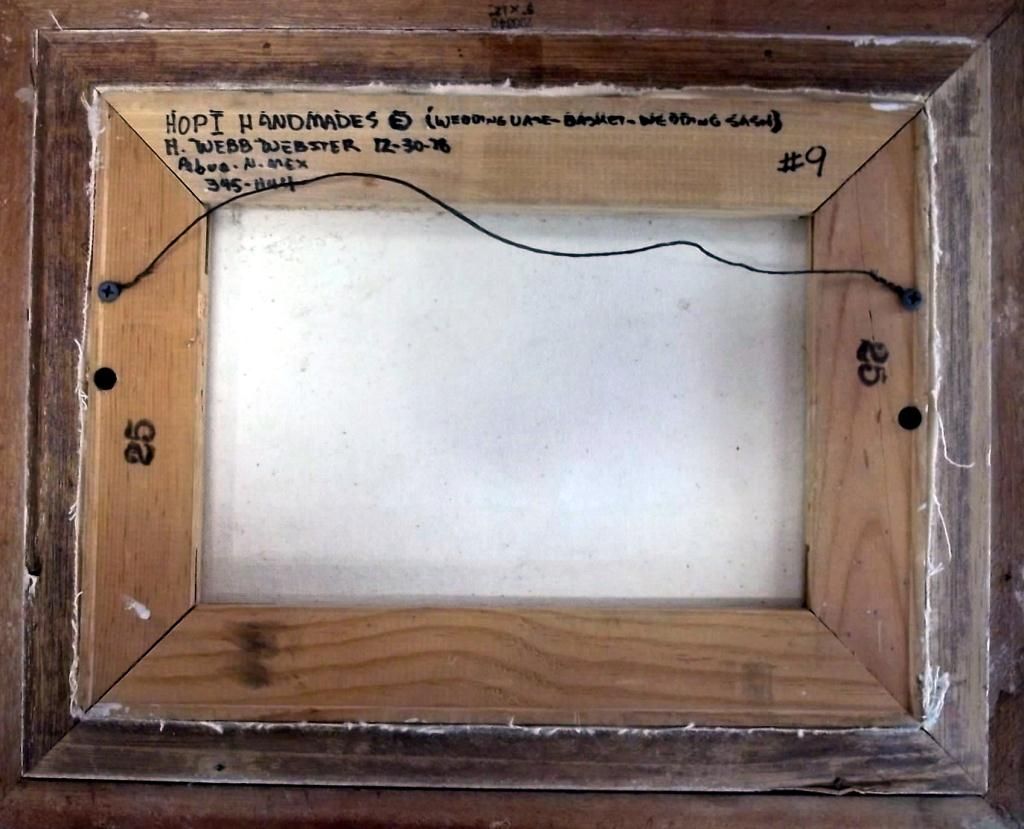 9" X 12"
HOPI HANDMADES (WEDDING VASE-BASKET-WEDDING SASH)
H. WEBB WEBSTER 12-30-78
Albuq. N. MEX
345-
#9
25
25